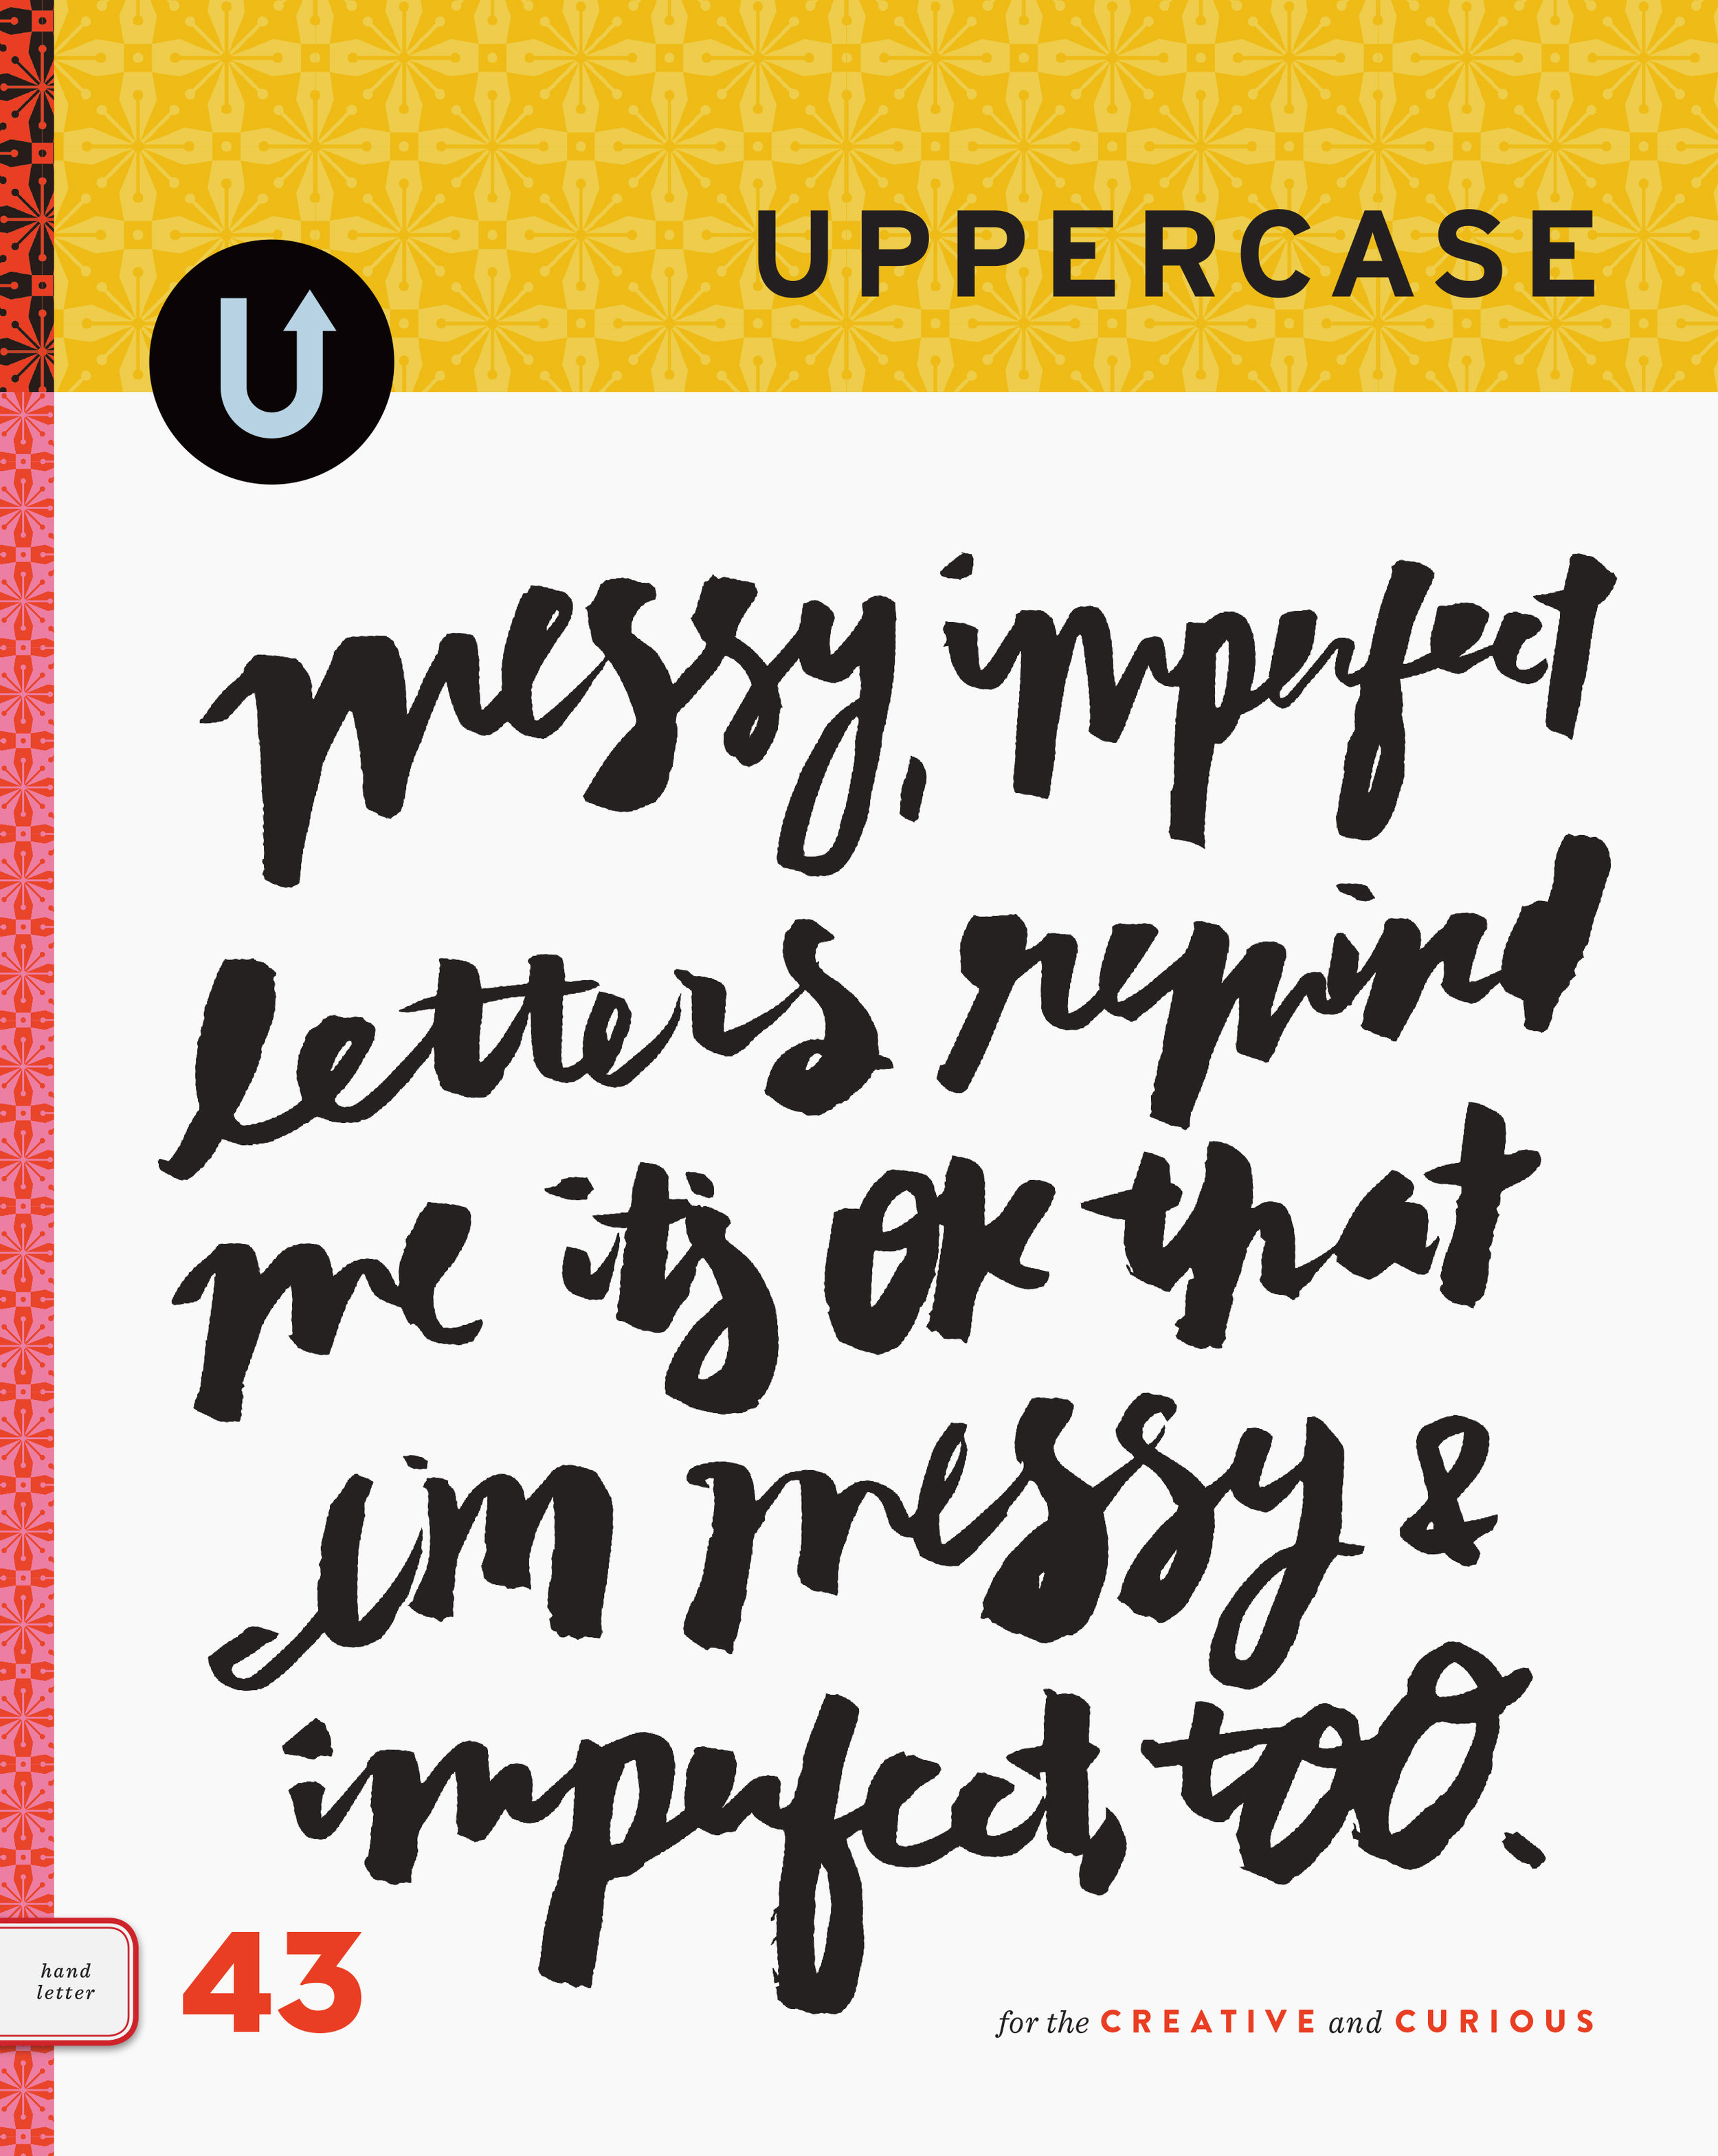 UPPERCASE
U
messy, imperfect
letters remind
me its OK that
im messy &
imperfect, too.
hand
letter
43
for the CREATIVE and CURIOUS